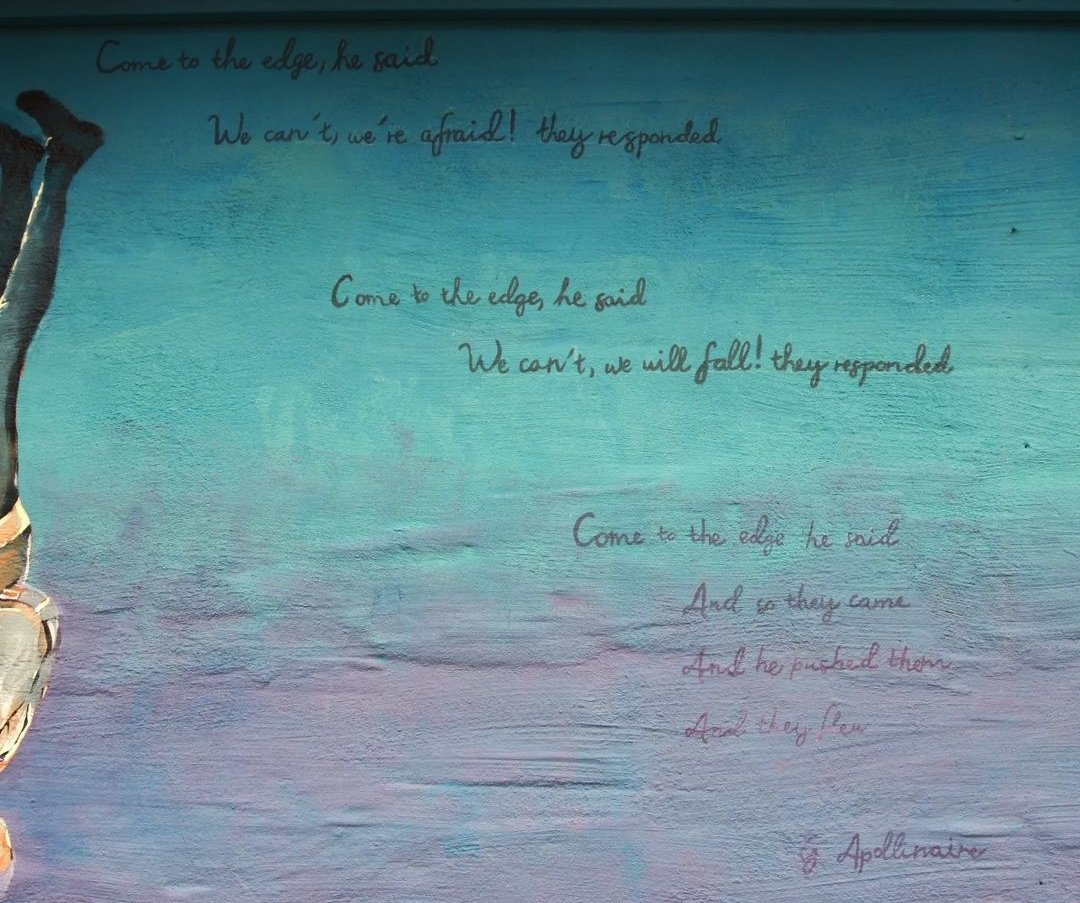 Come to the edge, he said
We can't, we're afraid! they responded
Come to the edge, he said
We can't, we will fall! they responded
Come to the edge he said
And so they came
And he pushed them
And they flew
G Apollinaire